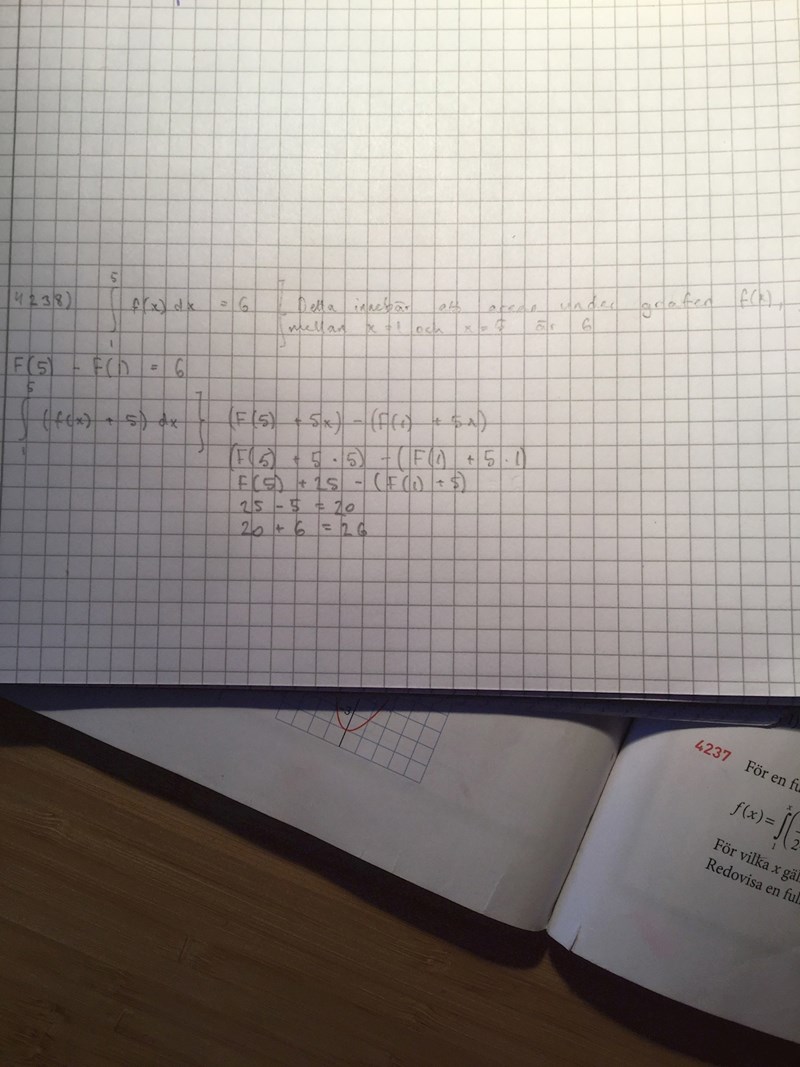 4238) ∫₁⁵ f(x) dx = 6 Detta innebär att arean under grafen f(x),
mellan x=1 och x=5 är 6
F(5) - F(1) = 6
∫₁⁵ (f(x) + 5) dx (F(5) + 5x) - (F(1) + 5x)
(F(5) + 5 · 5) - (F(1) + 5 · 1)
F(5) + 25 - (F(1) + 5)
25 - 5 = 20
20 + 6 = 26
4237 För en fu
f(x) = ∫₁ˣ (
2
För vilka x gäl
Redovisa en full